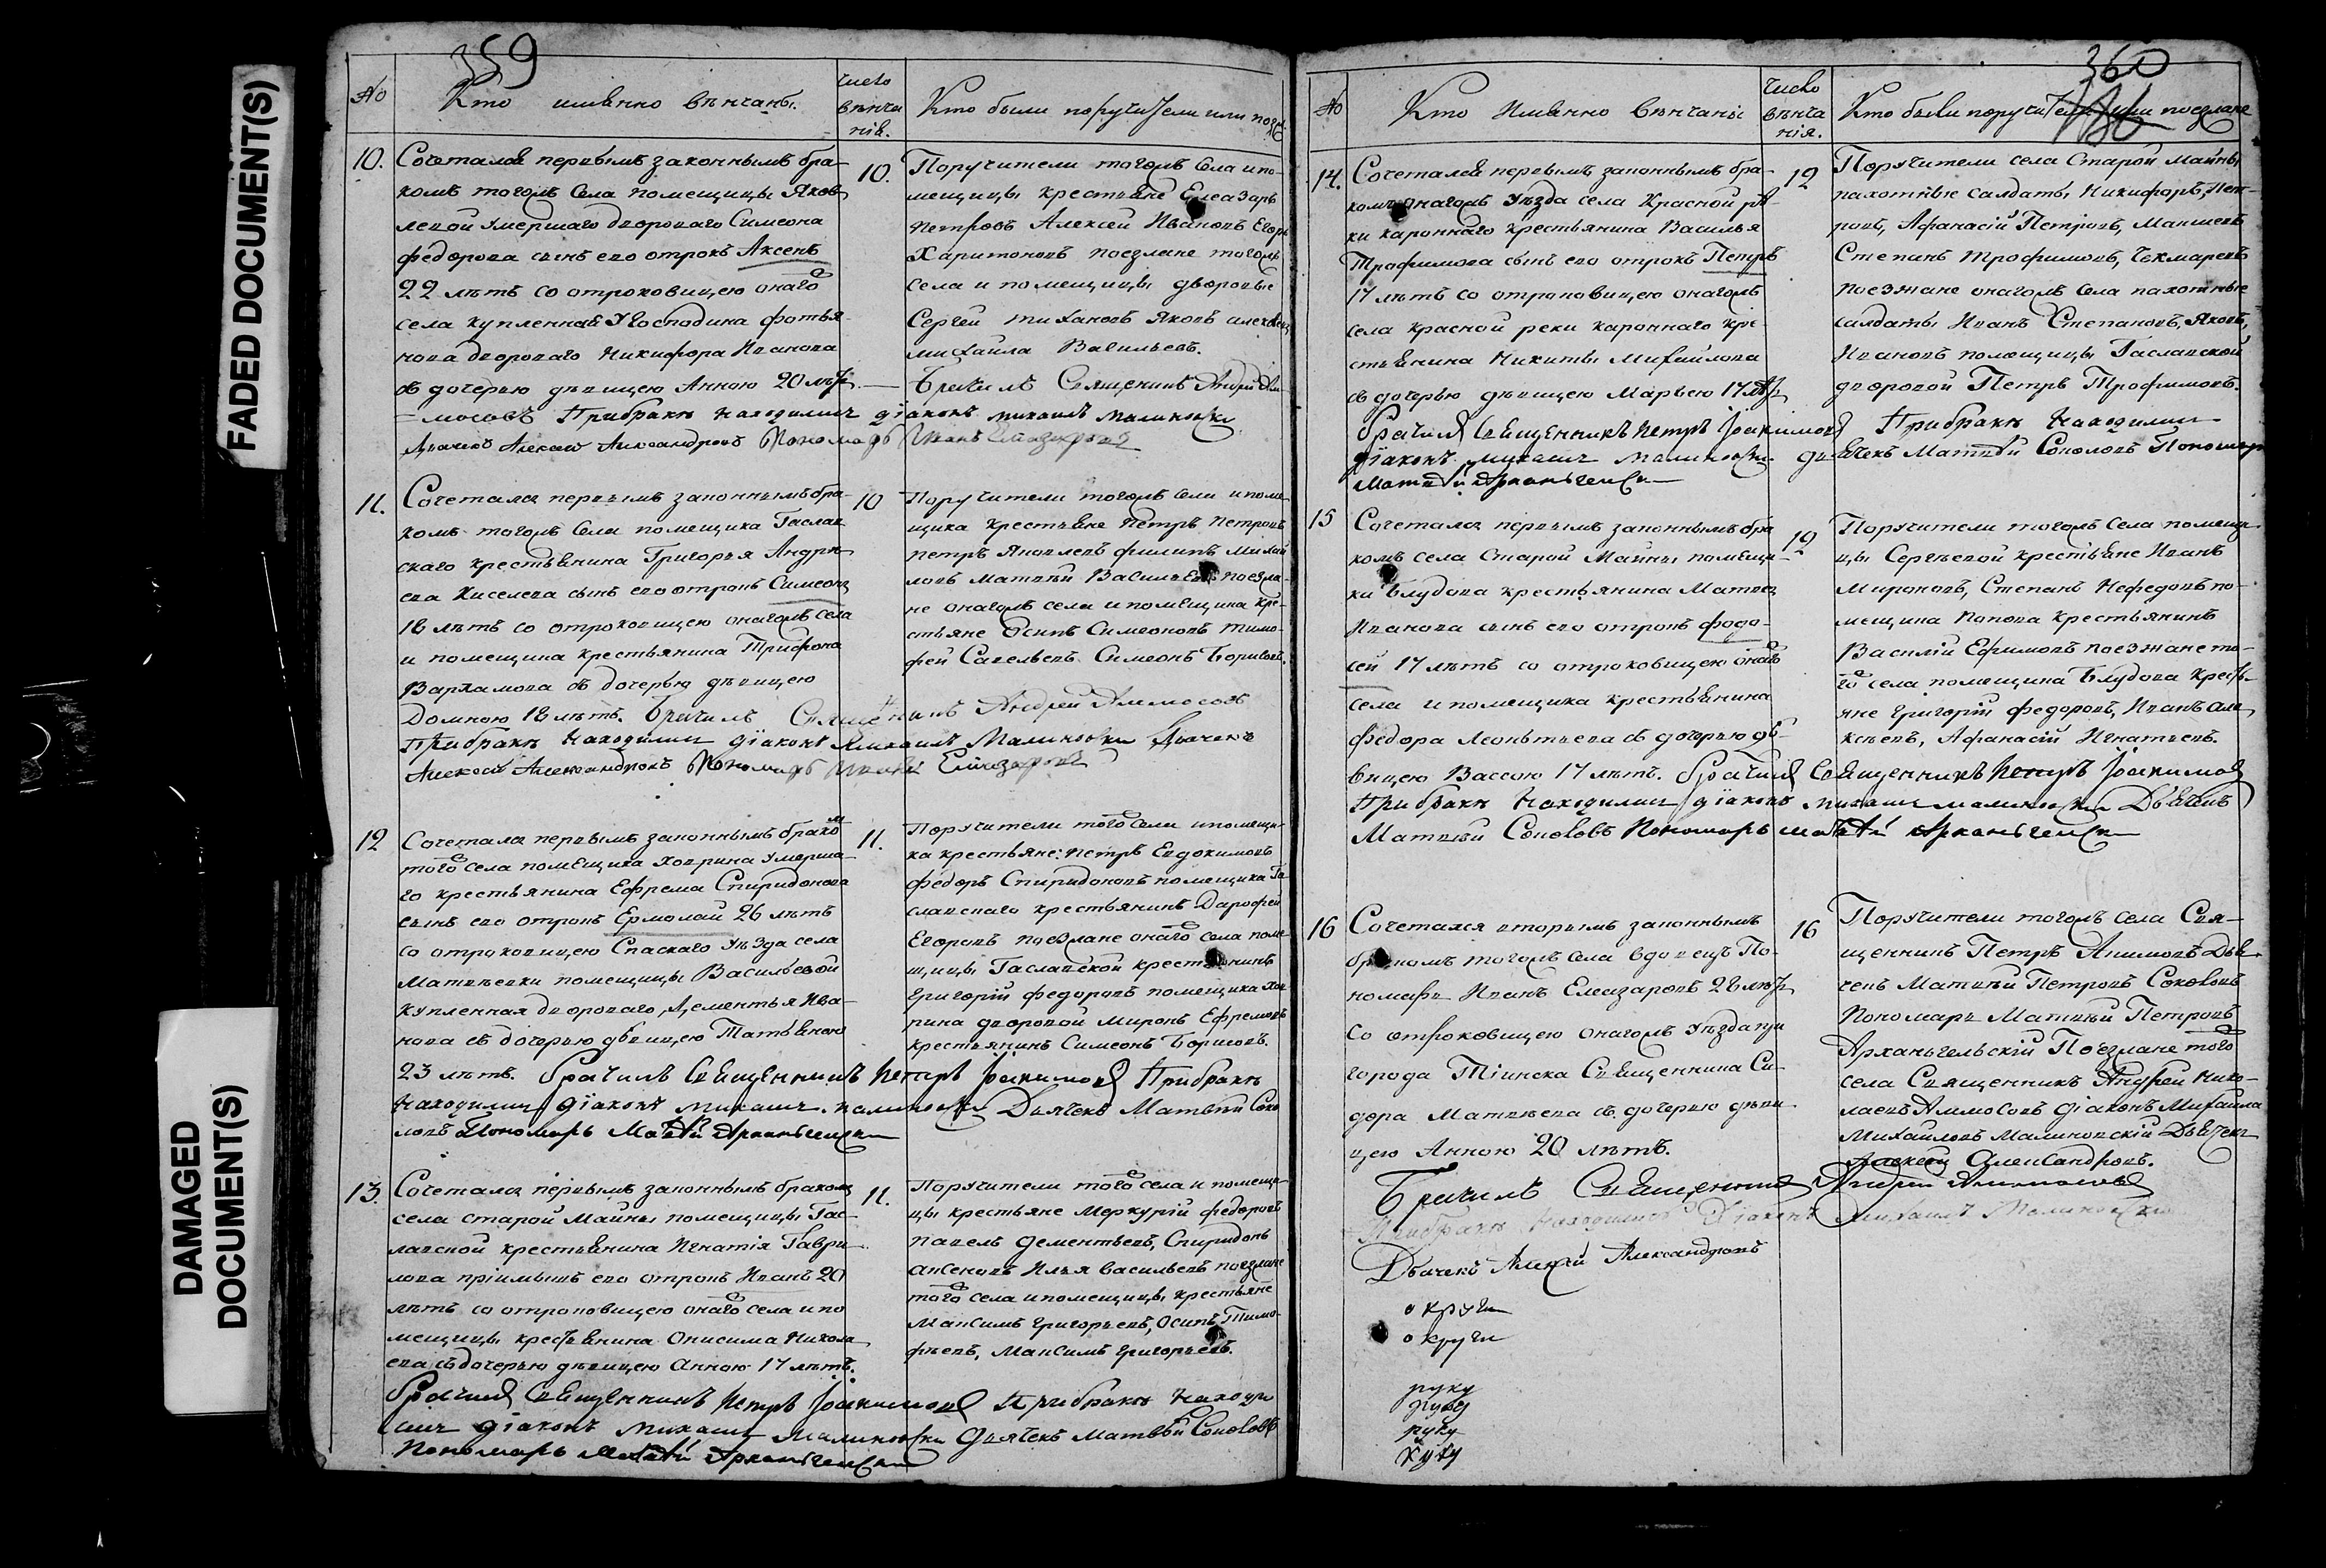 FADED DOCUMENT(S)
DAMAGED
DOCUMENT(S)
359
No
Кто имянно вѣнчаны.
число
вѣнча
нія.
Кто были поручители или поез
10.
Сочетался первымъ законнымъ бра-
комъ тогожъ села помещицы Яков
левой умершаго двороваго Симеона
федорова сынъ его отрокъ Аксенъ
22 лѣтъ со отроковицею онаго
села купленная у Господина фотья
нова двороваго Никифора Иванова
съ дочерью дѣвицею Анною 20 лѣтъ
10.
Поручители тогожъ села и по-
мещицы крестьяне Елеазаръ
Петровъ Алексей Ивановъ Егоръ
Харитоновъ поезжане тогожъ
села и помещицы дворовые
Сергей Тихановъ Яковъ Алексеевъ
Михайла Васильевъ.
Брачилъ Священникъ Андрей Ам-
=мосовъ При бракѣ находились діаконъ Михаилъ Малиновски
Дьячекъ Алексей Александровъ Пономарь Иванъ Елиазаровъ
11.
Сочетался первымъ законнымъ бра-
комъ тогожъ села помещика Гаслав
скаго крестьянина Григорья Андре
ева Киселева сынъ его отрокъ Симеонъ
18 лѣтъ со отроковицею онагожъ села
и помещика крестьянина Трифона
Варламова съ дочерью дѣвицею
Домною 18 лѣтъ. Брачилъ Священникъ Андрей Аммосовъ
При бракѣ находились діаконъ Михаилъ Малиновски Дьячекъ
Алексей Александровъ Пономарь Иванъ Елиазаровъ
10
Поручители тогожъ села и поме-
щика крестьяне Петръ Петровъ
Петръ Яковлевъ филипъ Михай
ловъ Матвѣй Васильевъ поезжа-
не онагожъ села и помещика кре-
стьяне Осипъ Симеоновъ Тимо-
фей Савельевъ Симеонъ Борисовъ.
12
Сочетался первымъ законнымъ бракомъ
того села помещика Ховрина умерша-
го крестьянина Ефрема Спиридонова
сынъ его отрокъ Ермолай 26 лѣтъ
со отроковицею Спаскаго уѣзда села
Матвеевки помещицы Васильевой
купленная двороваго, Дементья Ива-
нова съ дочерью дѣвицею Татьяною
23 лѣтъ. брачилъ Священникъ Петръ Іоакимовъ При бракѣ
находились діаконъ Михаилъ Малиновски Дьячекъ Матвѣй Соко
ловъ Пономарь Матвѣй Архангельски
11.
Поручители того села и помещи-
ка крестьяне: Петръ Евдокимовъ
федоръ Спиридоновъ помещика Га-
славскаго крестьянинъ Дорофей
Егоровъ поезжане онаго села поме-
щицы Гаславской крестьянинъ
Григорій федоровъ помещика Хов
рина дворовой Миронъ Ефремовъ
крестьянинъ Симеонъ Борисовъ.
13.
Сочетался первымъ законнымъ бракомъ
села старой Майны помещицы Гас-
лавской крестьянина Игнатія Гаври
лова пріимышъ его отрокъ Иванъ 20
лѣтъ со отроковицею онаго села и по
мещицы крестьянина Онисима Никола
ева съ дочерью дѣвицею Анною 17 лѣтъ.
брачилъ Священникъ Петръ Іоакимовъ При бракѣ находи
лись діаконъ Михаилъ Малиновски Дьячекъ Матвѣй Соколовъ
Пономарь Матвѣй Архангельски
11.
Поручители того села и помещи-
цы крестьяне Меркурій федоровъ
Павелъ Дементьевъ, Спиридонъ
Аксеновъ Илья Васильевъ поезжане
того села и помещицы крестьяне
Максимъ Григорьевъ, Осипъ Тимо-
фѣевъ, Максимъ Григорьевъ.
360
No
Кто имянно вѣнчаны
число
вѣнча
нія.
Кто были поручители или поезжане
14.
Сочетался первымъ законнымъ бра-
комъ онагожъ уѣзда села Красной рѣ-
ки кароннаго крестьянина Василья
Трофимова сынъ его отрокъ Петръ
17 лѣтъ со отроковицею онагожъ
села Красной реки кароннаго кре-
стьянина Никиты Михайлова
съ дочерью дѣвицею Марьею 17 лѣтъ
брачилъ Священникъ Петръ Іоакимовъ При бракѣ находились
діаконъ Михаилъ Малиновски дьячекъ Матвѣй Соколовъ Пономарь
Матвѣй Архангельски
12
Поручители села Старой Майны
пахотные салдаты Никифоръ Пет-
ровъ, Афанасій Петровъ,
Степанъ Трофимовъ,
поезжане онагожъ села пахотные
салдаты Иванъ Степановъ, Яковъ
Ивановъ помещицы Гаславской
дворовой Петръ Трофимовъ.
15
Сочетался первымъ законнымъ бра
комъ села Старой Майны помещи-
ка Блудова крестьянина Матвея
Иванова сынъ его отрокъ федо-
сей 17 лѣтъ со отроковицею онагожъ
села и помещика крестьянина
федора Леонтьева съ дочерью дѣ-
вицею Вассою 17 лѣтъ. брачилъ Священникъ Петръ Іоакимовъ
При бракѣ находились діаконъ Михаилъ Малиновски Дьячекъ
Матвѣй Соколовъ Пономарь Матвѣй Архангельски
12
Поручители тогожъ села помещи-
цы Сергѣевой крестьяне Иванъ
Мироновъ, Степанъ Нефедовъ по-
мещика Попова крестьянинъ
Василій Ефимовъ поезжане то-
го села помещика Блудова кресть-
яне Григорій федоровъ, Иванъ Але
ксѣевъ, Афанасій Игнатьевъ.
16
Сочетался вторымъ законнымъ
бракомъ тогожъ села вдовецъ По-
номарь Иванъ Елеазаровъ 28 лѣтъ
со отроковицею онагожъ уѣзда при
города Тіинска Священника Си-
дора Матвеева съ дочерью дѣви
цею Анною 20 лѣтъ.
16
Поручители тогожъ села Свя-
щенникъ Петръ Акимовъ Дья-
чекъ Матвѣй Петровъ Соколовъ
Пономарь Матвѣй Петровъ
Архангельскій Поезжане того
села Священникъ Андрей Нико-
лаевъ Аммосовъ діаконъ Михайла
Михайловъ Малиновскій Дьячекъ
Алексей Александровъ.
Брачилъ Священникъ Андрей Аммосовъ
При бракѣ находились Діаконъ Михаилъ Малиновски
Дьячекъ Алексей Александровъ
округи
округи
руку
руку
руку
руку